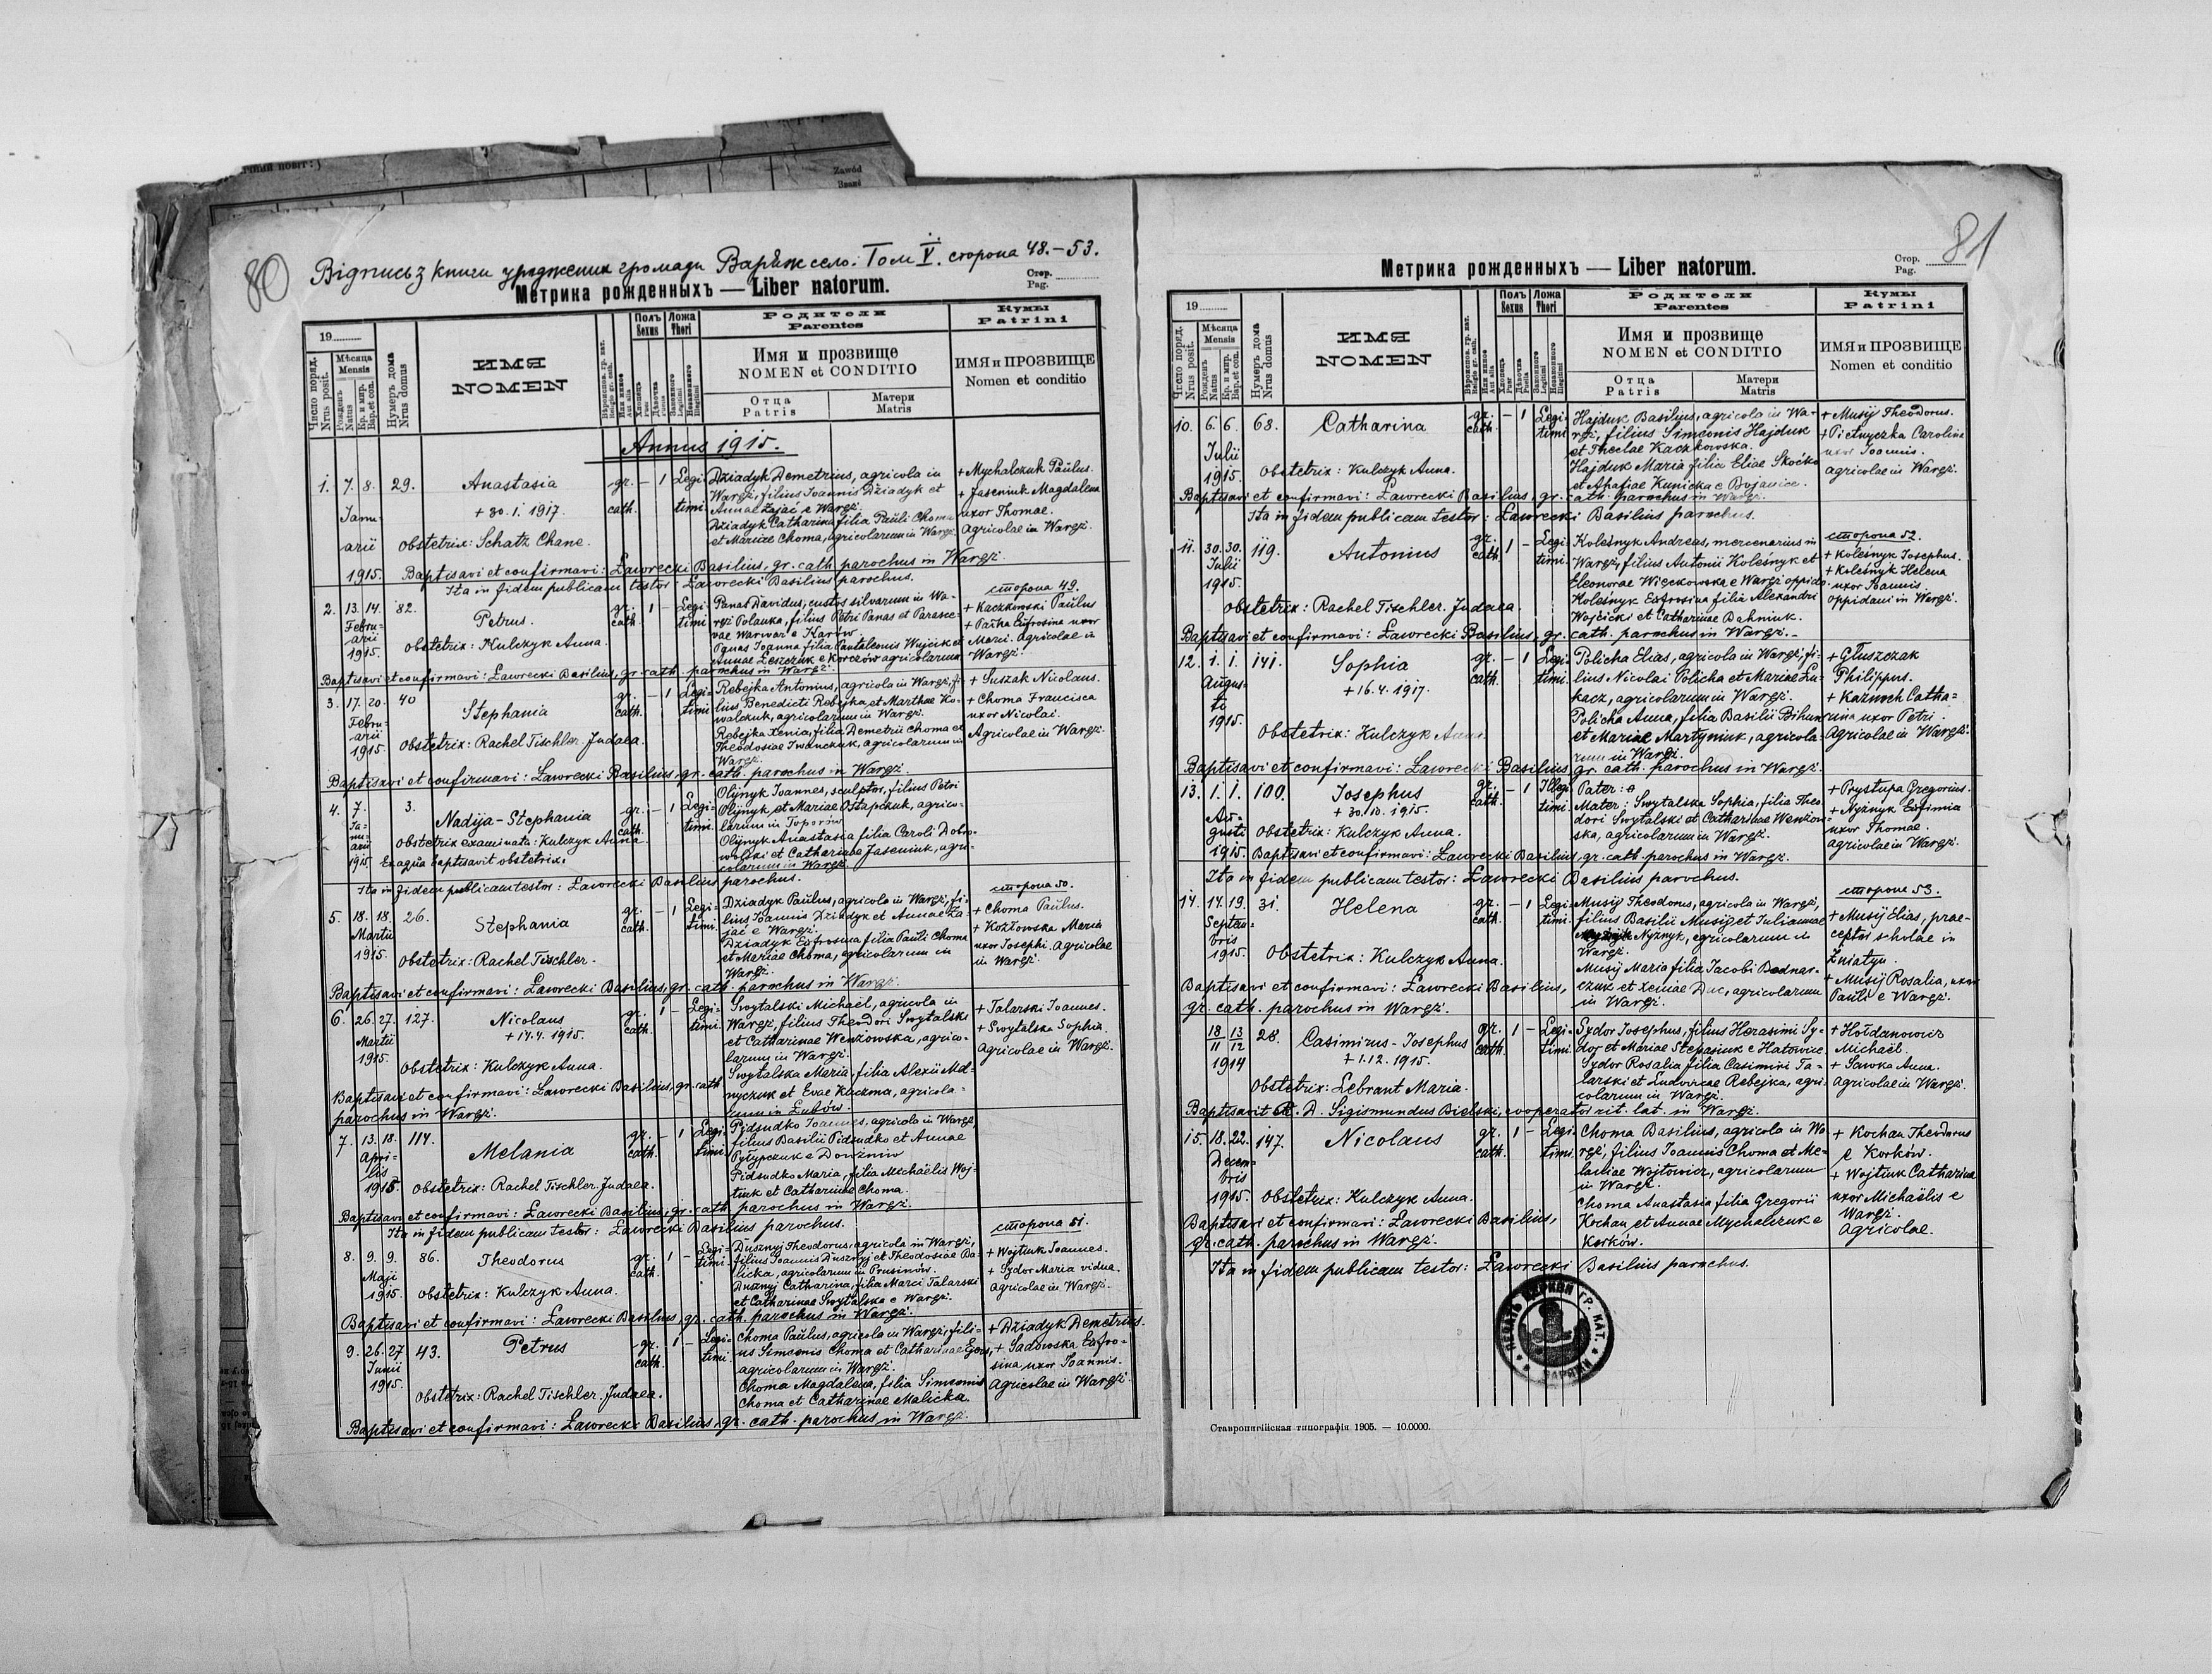 80
Відпись з книги уроджених громади Варяж село. Том V. сторона 48.–53.
Метрика рожденныхъ — Liber natorum.
Стор.
Pag.
19
Число поряд.
Nrus posit.
Мѣсяца
Mensis
Рожденъ
Natus
Кр. и мир.
Bap. et con.
Нумеръ дома
Nrus domus
ИМЯ
NOMEN
Полъ
Sexus
Ложа
Thori
Родители
Parentes
Имя и прозвище
NOMEN et CONDITIO
Отца
Patris
Матери
Matris
Кумы
Patrini
ИМЯ и ПРОЗВИЩЕ
Nomen et conditio
Annus 1915.
1. 7. 8. 29. Anastasia gr. cath. – 1 Legitimi
Januarii 1915.
+ 30. 1. 1917.
Obstetrix: Schatz Chane.
Dziadyk Demetrius, agricola in
Wargż, filius Joannis Dziadyk et
Annae Zajac e Wargż.
Dziadyk Catharina filia Pauli Choma
et Mariae Choma, agricolarum in Wargż.
+ Mychalczuk Paulus.
+ Jaseniuk Magdalena
uxor Thomae.
Agricolae in Wargż.
Baptisavi et confirmavi: Ławrecki Basilius, gr. cath. parochus in Wargż.
Ita in fidem publicam testor: Ławrecki Basilius parochus.
сторона 49.
2. 13. 14. 82. Petrus. gr. cath. 1 – Legitimi
Februarii 1915.
Obstetrix: Kulczyk Anna.
Panas Davidus, custos silvarum in Wa-
rgż Polanka, filius Petri Panas et Parasce-
vae Warwar e Karów
Panas Joanna filia Pantaleonis Wujcik et
Annae Leszczuk e Korczów agricolarum
+ Kaczkowski Paulus
+ Paśka Eufrosina uxor
Marci. Agricolae in
Wargż.
Baptisavi et confirmavi: Ławrecki Basilius, gr. cath. parochus in Wargż.
3. 17. 20. 40 Stephania gr. cath. – 1 Legitimi
Februarii 1915.
Obstetrix: Rachel Tischler Judaea.
Rebejka Antonius, agricola in Wargż, fi-
lius Benedicti Rebejka et Marthae Ko-
walczuk, agricolarum in Wargż.
Rebejka Xenia, filia Demetrii Choma et
Theodosiae Iwanczuk, agricolarum in
Wargż.
+ Suszak Nicolaus.
+ Choma Francisca
uxor Nicolai.
Agricolae in Wargż.
Baptisavi et confirmavi: Ławrecki Basilius, gr. cath. parochus in Wargż.
4. 7. 3. Nadija-Stephania gr. cath. – 1 Legitimi.
Januarii 1915.
Obstetrix examinata: Kulczyk Anna
Ex aqua baptisavit obstetrix.
Olijnyk Joannes, sculptor, filius Petri
Olijnyk, et Mariae Ostapczuk, agrico-
larum in Toporów
Olijnyk Anastasia filia Caroli Dobro-
wolski et Catharinae Jaseniuk, agri-
colarum in Wargż.
Ita in fidem publicam testor: Ławrecki Basilius parochus.
сторона 50.
5. 18. 18. 26. Stephania gr. cath. – 1 Legitimi.
Martii 1915.
Obstetrix: Rachel Tischler.
Dziadyk Paulus, agricola in Wargż, fi-
lius Joannis Dziadyk et Annae Za-
jac e Wargż.
Dziadyk Eufrosina filia Pauli Choma
et Mariae Choma, agricolarum in
Wargż.
+ Choma Paulus.
+ Kozłowska Maria
uxor Josephi. Agricolae
in Wargż.
Baptisavi et confirmavi: Ławrecki Basilius, gr. cath. parochus in Wargż.
6. 26. 27. 127. Nicolaus gr. cath. 1 – Legitimi.
Martii 1915.
+ 14. 4. 1915.
Obstetrix: Kulczyk Anna.
Swytalski Michaël, agricola in
Wargż, filius Theodori Swytalski
et Catharinae Wenzowska, agrico-
larum in Wargż.
Swytalska Maria, filia Alexii Mel-
nyczuk et Evae Kuczma, agricola-
rum in Łubów.
+ Talarski Joannes.
+ Swytalska Sophia.
Agricolae in Wargż.
Baptisavi et confirmavi: Ławrecki Basilius, gr. cath.
parochus in Wargż.
7. 13. 18. 114. Melania gr. cath. – 1 Legitimi.
Aprilis 1915.
Obstetrix: Rachel Tischler. Judaea.
Pidsudko Joannes, agricola in Wargż,
filius Basilii Pidsudko et Annae
Pyłypczuk e Dowżniw
Pidsudko Maria, filia Michaëlis Woj-
tiuk et Catharinae Choma.
Baptisavi et confirmavi: Ławrecki Basilius, gr. cath. parochus in Wargż.
Ita in fidem publicam testor: Ławrecki Basilius parochus.
сторона 51.
8. 9. 9. 86. Theodorus gr. cath. 1 – Legitimi.
Maji 1915.
Obstetrix: Kulczyk Anna.
Dusznyj Theodorus, agricola in Wargż,
filius Joannis Dusznyj et Theodosiae Ba-
licka, agricolarum in Prusinów.
Dusznyj Catharina, filia Marci Talarski
et Catharinae Swytalska e Wargż.
+ Wojtiuk Joannes.
+ Sydor Maria vidua.
Agricolae in Wargż.
Baptisavi et confirmavi: Ławrecki Basilius, gr. cath. parochus in Wargż.
9. 26. 27 43. Petrus gr. cath. 1 – Legitimi.
Junii 1915.
Obstetrix: Rachel Tischler. Judaea.
Choma Paulus, agricola in Wargż, fili-
us Simeonis Choma et Catharinae
agricolarum in Wargż.
Choma Magdalena, filia Simeonis
Choma et Catharinae Malicka.
+ Dziadyk Demetrius.
+ Sadowska Eufro-
sina uxor Joannis.
Agricolae in Wargż.
Baptisavi et confirmavi: Ławrecki Basilius, gr. cath. parochus in Wargż.
81
Метрика рожденныхъ — Liber natorum.
Стор.
Pag.
19
Число поряд.
Nrus posit.
Мѣсяца
Mensis
Рожденъ
Natus
Кр. и мир.
Bap. et con.
Нумеръ дома
Nrus domus
ИМЯ
NOMEN
Полъ
Sexus
Ложа
Thori
Родители
Parentes
Имя и прозвище
NOMEN et CONDITIO
Отца
Patris
Матери
Matris
Кумы
Patrini
ИМЯ и ПРОЗВИЩЕ
Nomen et conditio
10. 6. 6. 68. Catharina gr. cath. – 1 Legitimi
Julii 1915.
Obstetrix: Kulczyk Anna.
Hajduk Basilius, agricola in Wa-
rgż, filius Simeonis Hajduk
et Theclae Kaczkowska.
Hajduk Maria filia Eliae Skoćko
et Ahafiae Kunicka e Bojanice.
+ Musij Theodorus.
+ Pietnyczka Carolina
uxor Joannis.
Agricolae in Wargż.
Baptisavi et confirmavi: Ławrecki Basilius, gr. cath. parochus in Wargż.
Ita in fidem publicam testor: Ławrecki Basilius parochus.
сторона 52.
11. 30. 30. 119. Antonius gr. cath. 1 – Legitimi.
Julii 1915.
Obstetrix: Rachel Tischler. Judaea.
Koleśnyk Andreas, mercenarius in
Wargż, filius Antonii Koleśnyk et
Eleonorae Więckowska e Wargż oppido.
Koleśnyk Eufrosina filia Alexandri
Wojcicki et Catharinae Dahniuk.
+ Koleśnyk Josephus.
+ Koleśnyk Helena
uxor Joannis.
Oppidani in Wargż.
Baptisavi et confirmavi: Ławrecki Basilius, gr. cath. parochus in Wargż.
12. 1. 1. 141. Sophia gr. cath. – 1 Legitimi.
Augusti 1915.
+ 16. 4. 1917.
Obstetrix: Kulczyk Anna.
Policha Elias, agricola in Wargż, fi-
lius Nicolai Policha et Mariae Lu-
kacz, agricolarum in Wargż.
Policha Anna, filia Basilii Bihun
et Mariae Martyniuk, agricola-
rum in Wargż.
+ Głuszczak
Philippus.
+ Kaznoch Catha-
rina uxor Petri.
Agricolae in Wargż.
Baptisavi et confirmavi: Ławrecki Basilius gr. cath. parochus in Wargż.
13. 1. 1. 100. Josephus gr. cath. – 1 Illegitimi.
Augusti 1915.
+ 30. 10. 1915.
Obstetrix: Kulczyk Anna.
Pater:
Mater: Swytalska Sophia, filia Theo-
dori Swytalski et Catharinae Wenzow-
ska, agricolarum in Wargż.
+ Prystupa Gregorius.
+ Nyżnyk Eufimia
uxor Thomae.
Agricolae in Wargż.
Baptisavi et confirmavi: Ławrecki Basilius, gr. cath. parochus in Wargż.
Ita in fidem publicam testor: Ławrecki Basilius parochus.
сторона 53.
14. 14. 19. 31. Helena gr. cath. – 1 Legitimi.
Septembris 1915.
Obstetrix: Kulczyk Anna.
Musij Theodorus, agricola in Wargż,
filius Basilii Musij et Julianae
Nyżnyk, agricolarum in
Wargż.
Musij Maria filia Jacobi Bodnar-
czuk et Xeniae Duc, agricolarum
in Wargż.
+ Musij Elias, prae-
ceptor scholae in
Żniatyn.
+ Musij Rosalia, uxor
Pauli e Wargż.
Baptisavi et confirmavi: Ławrecki Basilius,
gr. cath. parochus in Wargż.
18/11 13/12 1914 28. Casimirus-Josephus gr. cath. 1 – Legitimi.
+ 1. 12. 1915.
Obstetrix: Lebrant Maria.
Sydor Josephus, filius Herasimi Sy-
dor et Mariae Stepaniuk e Hatowice
Sydor Rosalia filia Casimiri Ta-
larski et Ludovicae Rebejka, agri-
colarum in Wargż.
+ Hołdanowicz
Michaël.
+ Sawka Anna.
Agricolae in Wargż.
Baptisavit R. D. Sigismundus Bielski, cooperator rit. lat. in Wargż.
15. 18. 22. 147. Nicolaus gr. cath. 1 – Legitimi.
Decembris 1915.
Obstetrix: Kulczyk Anna.
Choma Basilius, agricola in Wa-
rgż, filius Joannis Choma et Me-
laniae Wojtowicz, agricolarum
in Wargż.
Choma Anastasia filia Gregorii
Kochan et Annae Mychalczuk e
Korków.
+ Kochan Theodorus
e Korków.
+ Wojtiuk Catharina
uxor Michaëlis e
Wargż.
Agricolae.
Baptisavi et confirmavi: Ławrecki Basilius,
gr. cath. parochus in Wargż.
Ita in fidem publicam testor: Ławrecki Basilius parochus.
Ставропигійская типографія 1905. — 10.0000.